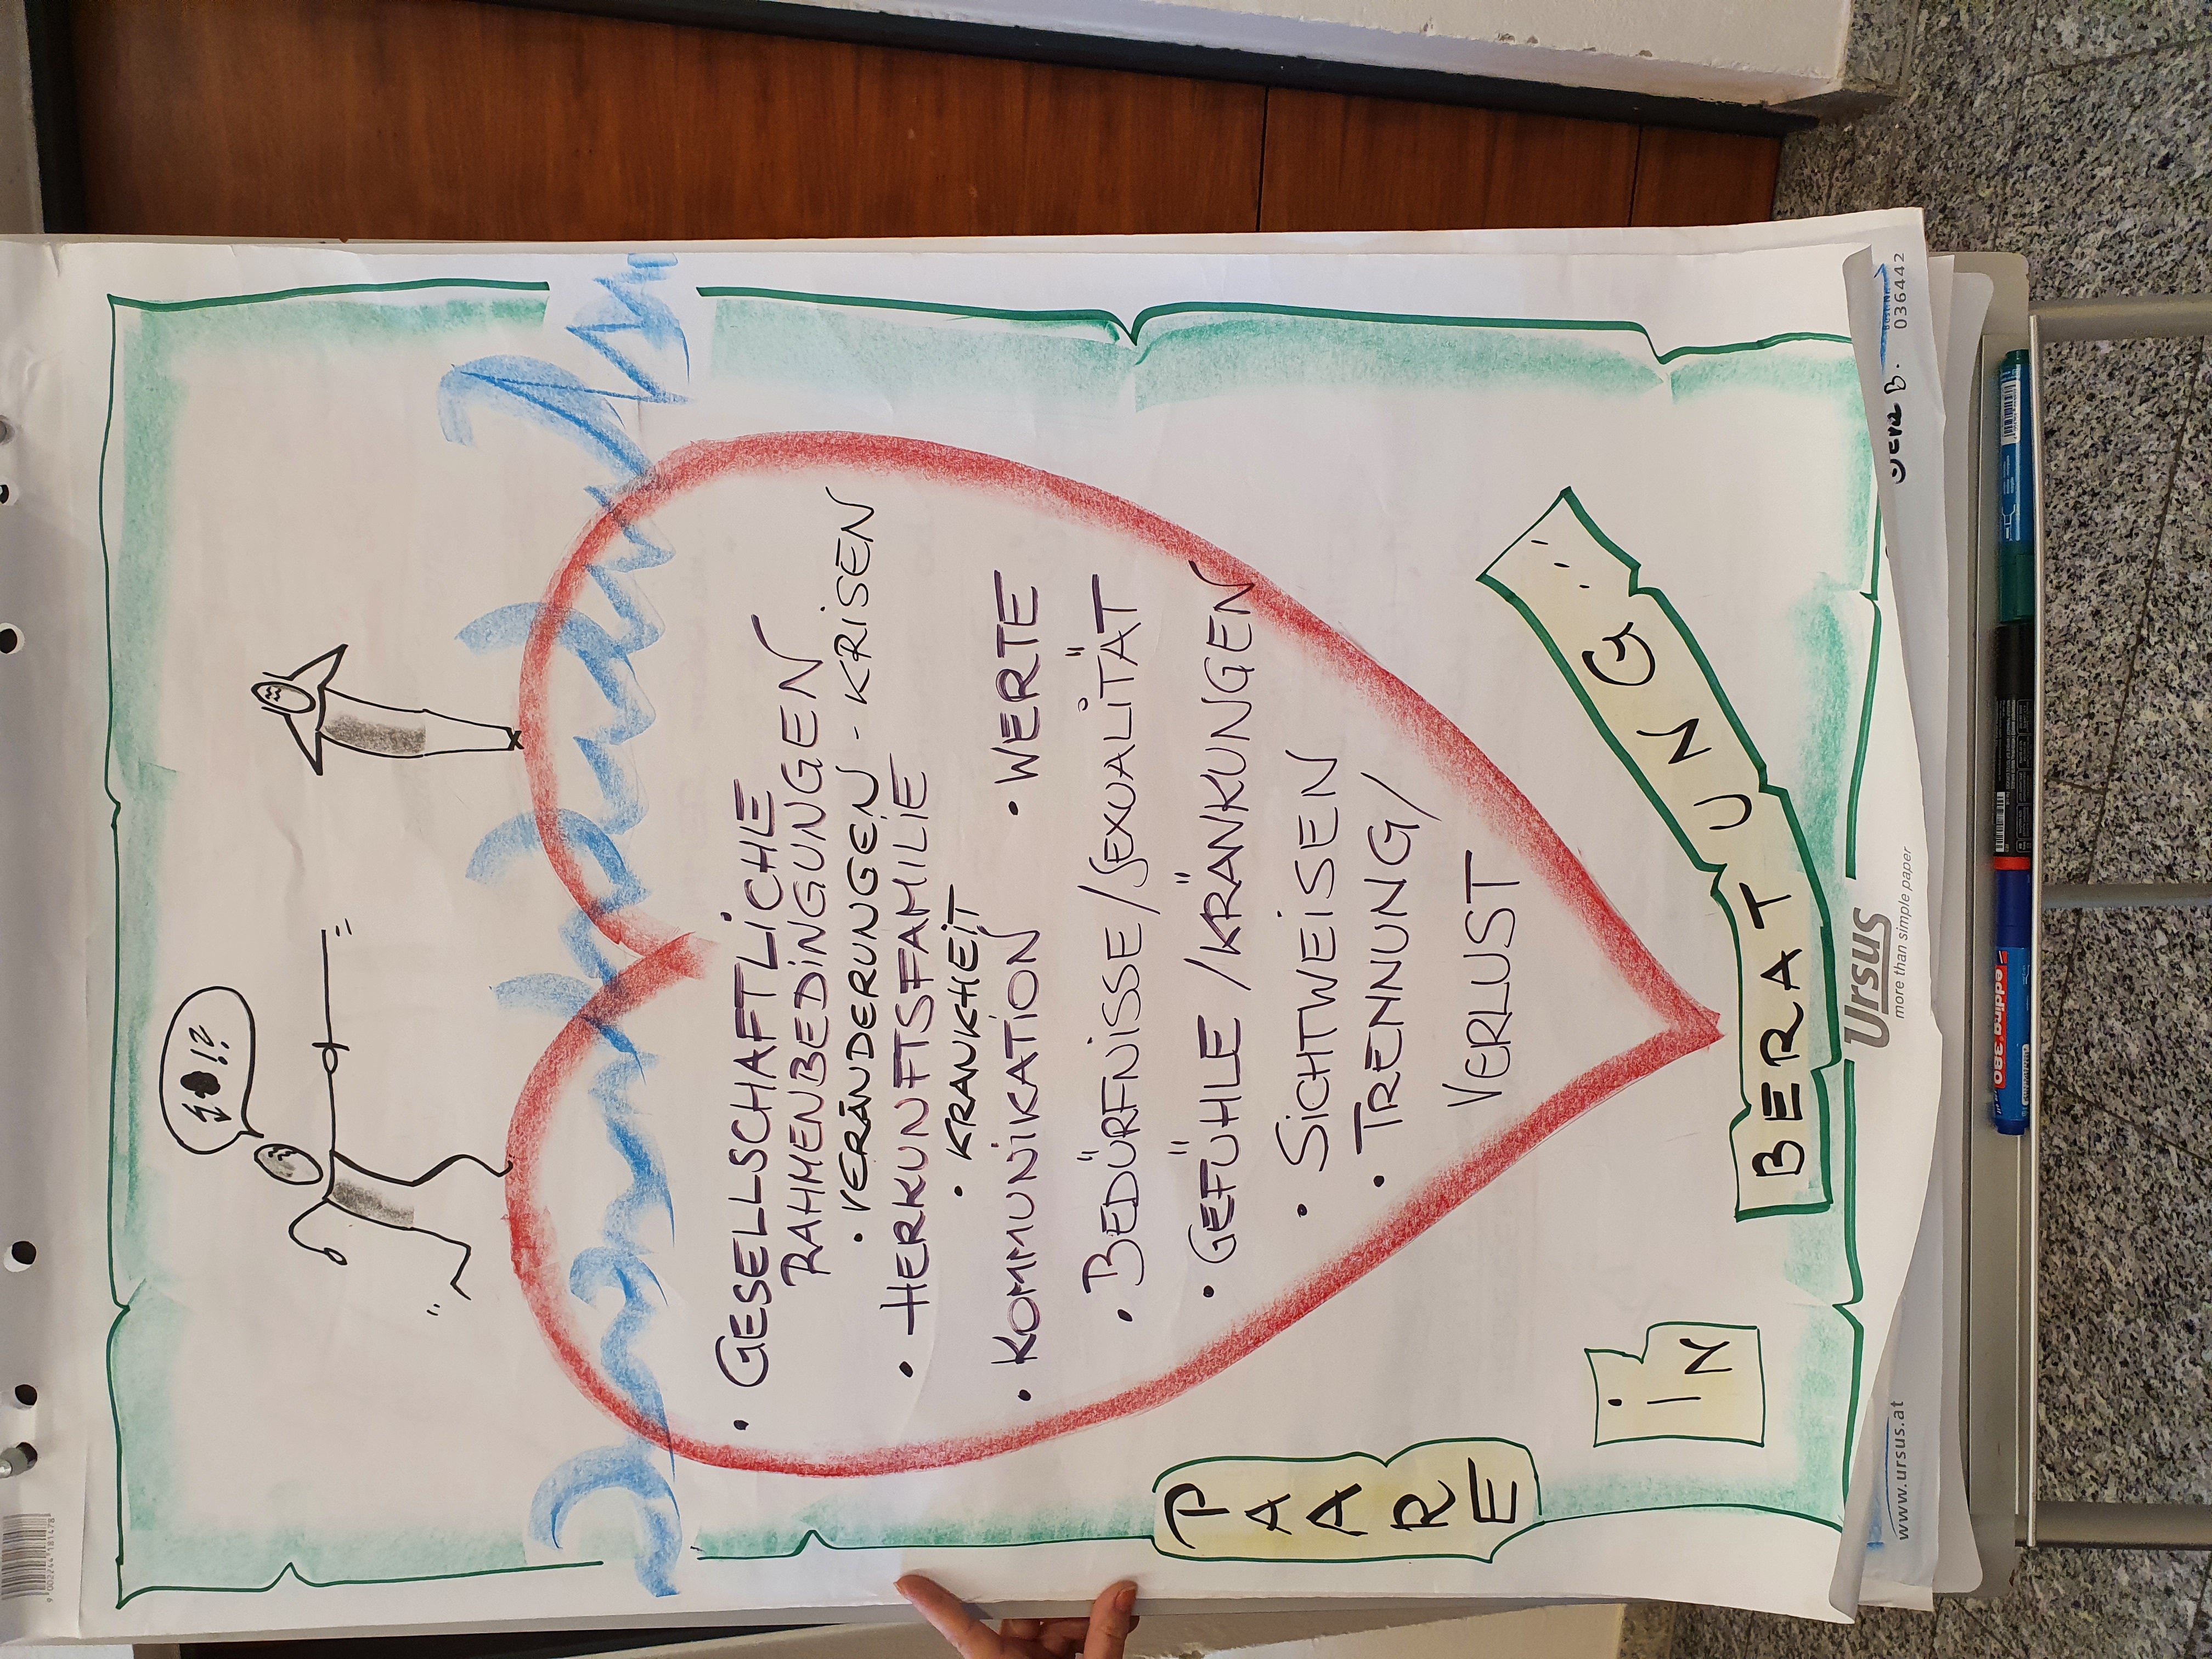 9002244181478
?!
• GESELLSCHAFTLICHE
RAHMENBEDINGUNGEN
• VERÄNDERUNGEN - KRISEN
• HERKUNFTSFAMILIE
• KRANKHEIT
• KOMMUNIKATION • WERTE
• BEDÜRFNISSE / SEXUALITÄT
• GEFÜHLE / KRÄNKUNGEN
• SICHTWEISEN
• TRENNUNG /
VERLUST
PAARE
IN
BERATUNG
Ursus
more than simple paper
www.ursus.at
B.
036442
edding 380